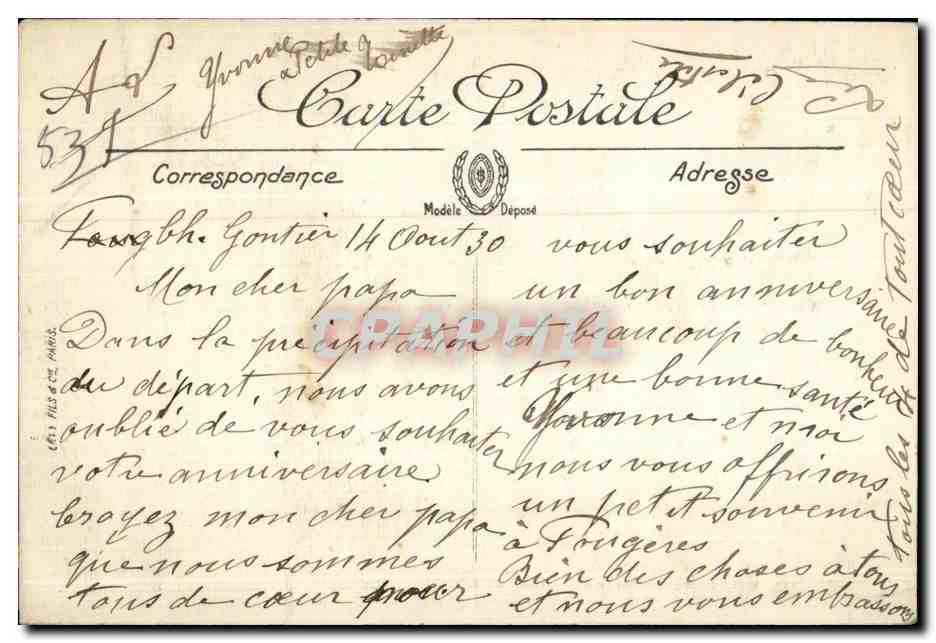 A
53
Yvonne
Petite
Carte Postale
Correspondance
Adresse
Modèle Déposé
Ch. Gontier 14 Aout 30
Mon cher papa
Dans la précipitation
du départ, nous avons
oublié de vous souhaiter
votre anniversaire
Croyez mon cher papa
que nous sommes
tous de cœur pour
vous souhaiter
un bon anniversaire
et beaucoup de bonheur
et une bonne santé
Yvonne et moi
nous vous offrirons
un petit souvenir
à Fougères
Bien des choses à tous
et nous vous embrassons
tous les 4 de tout cœur
FILS & Cie PARIS.
CPAPHIL